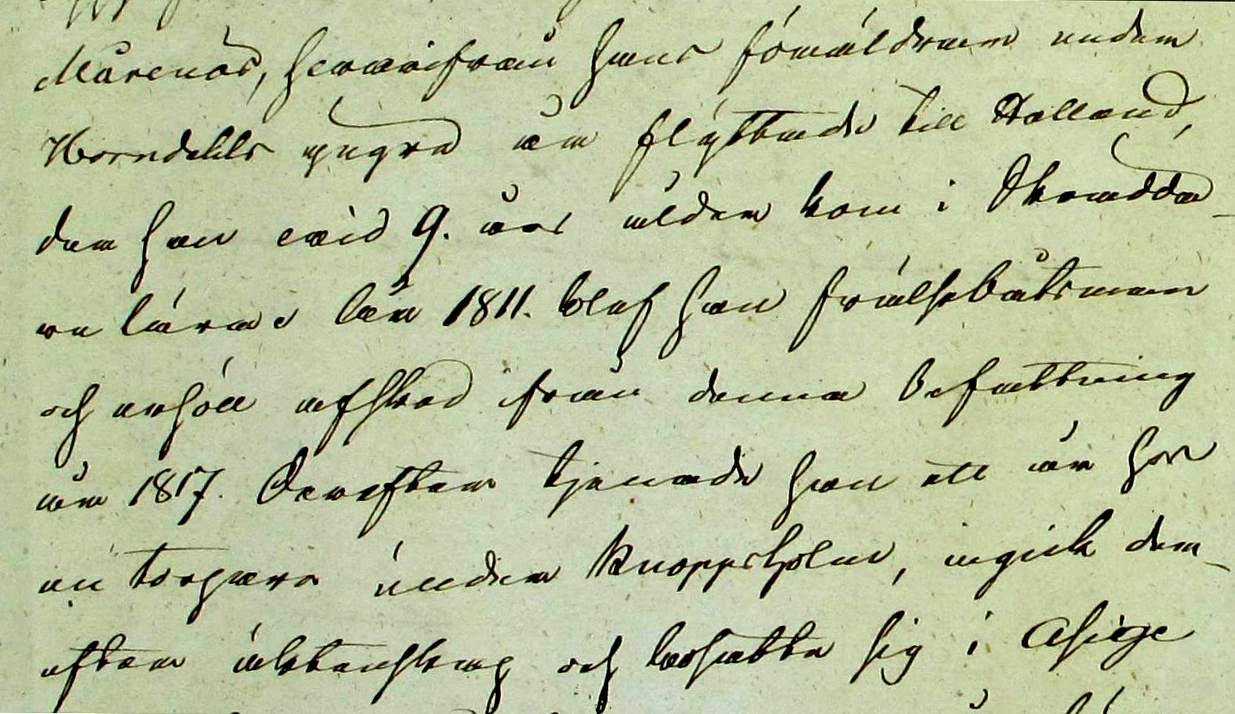 Mårenäs, hvarifrån hans föräldrar under
yngre år flyttade till Halland,
der han vid 9. års ålder kom i Skrädda-
re lära. År 1811. blef han frälsebåtsman
och erhöll afsked från denna befattning
år 1817. Derefter tjenade han ett år hos
en torpare under Knoppsholm, ingick der-
efter äktenskap och bosatte sig i Asige